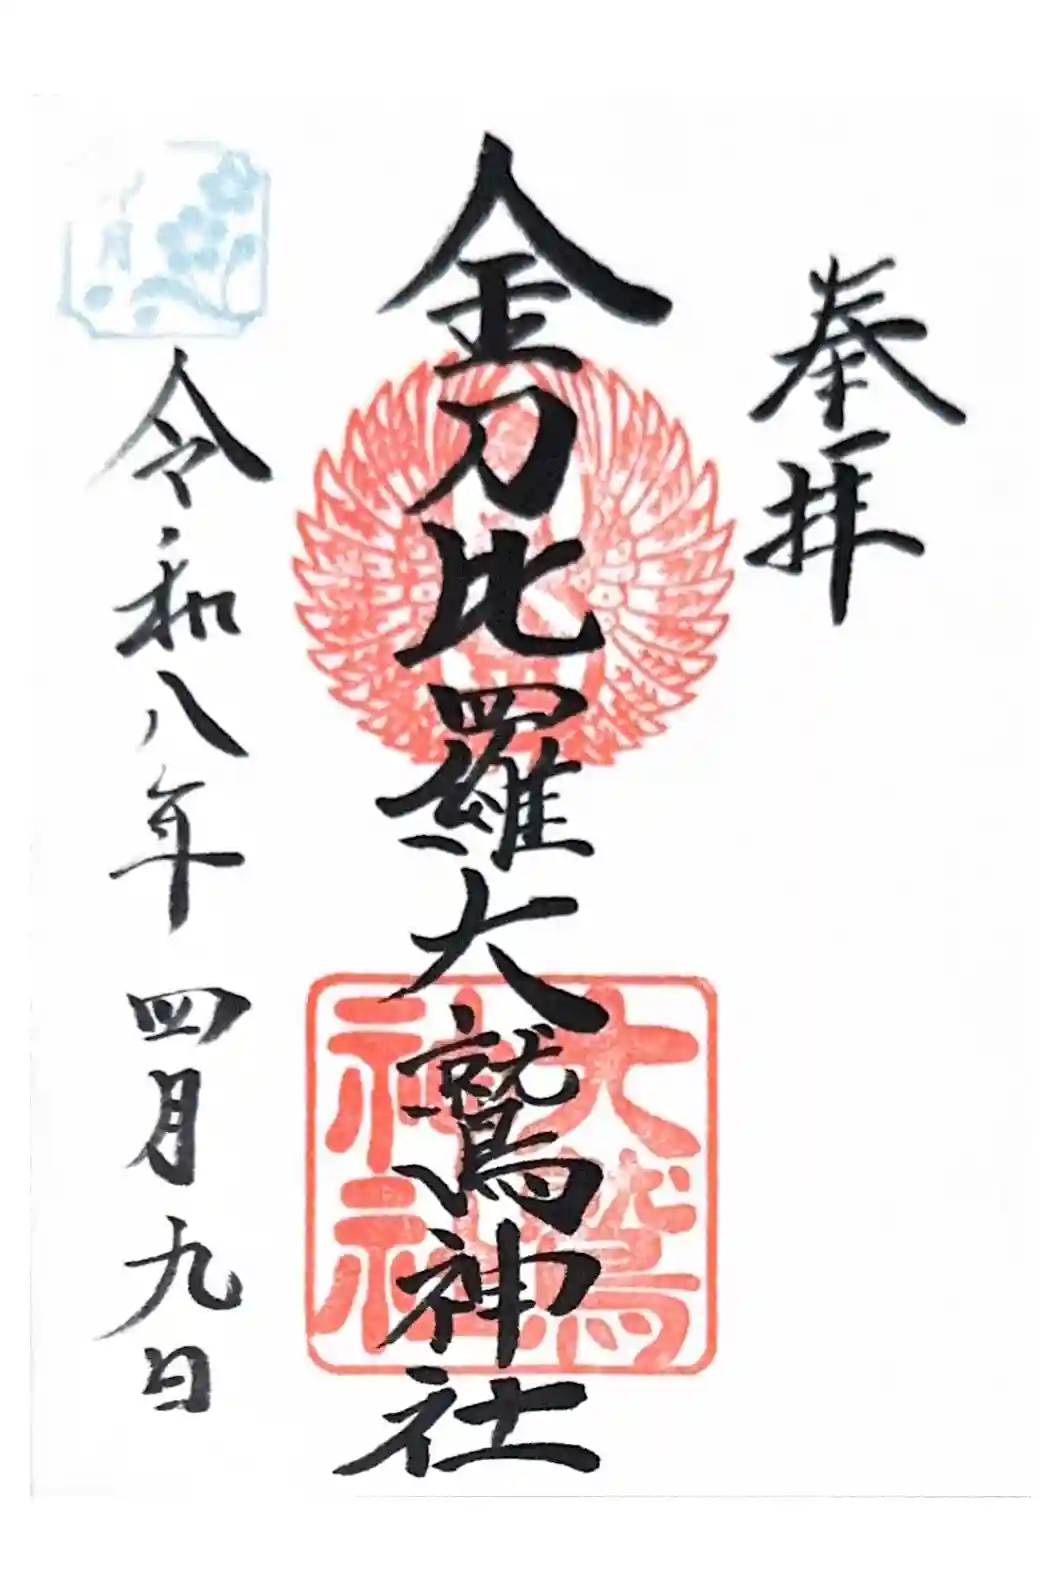 奉拝
金刀比羅大鷲神社
大鷲
神社
令和八年四月九日
月